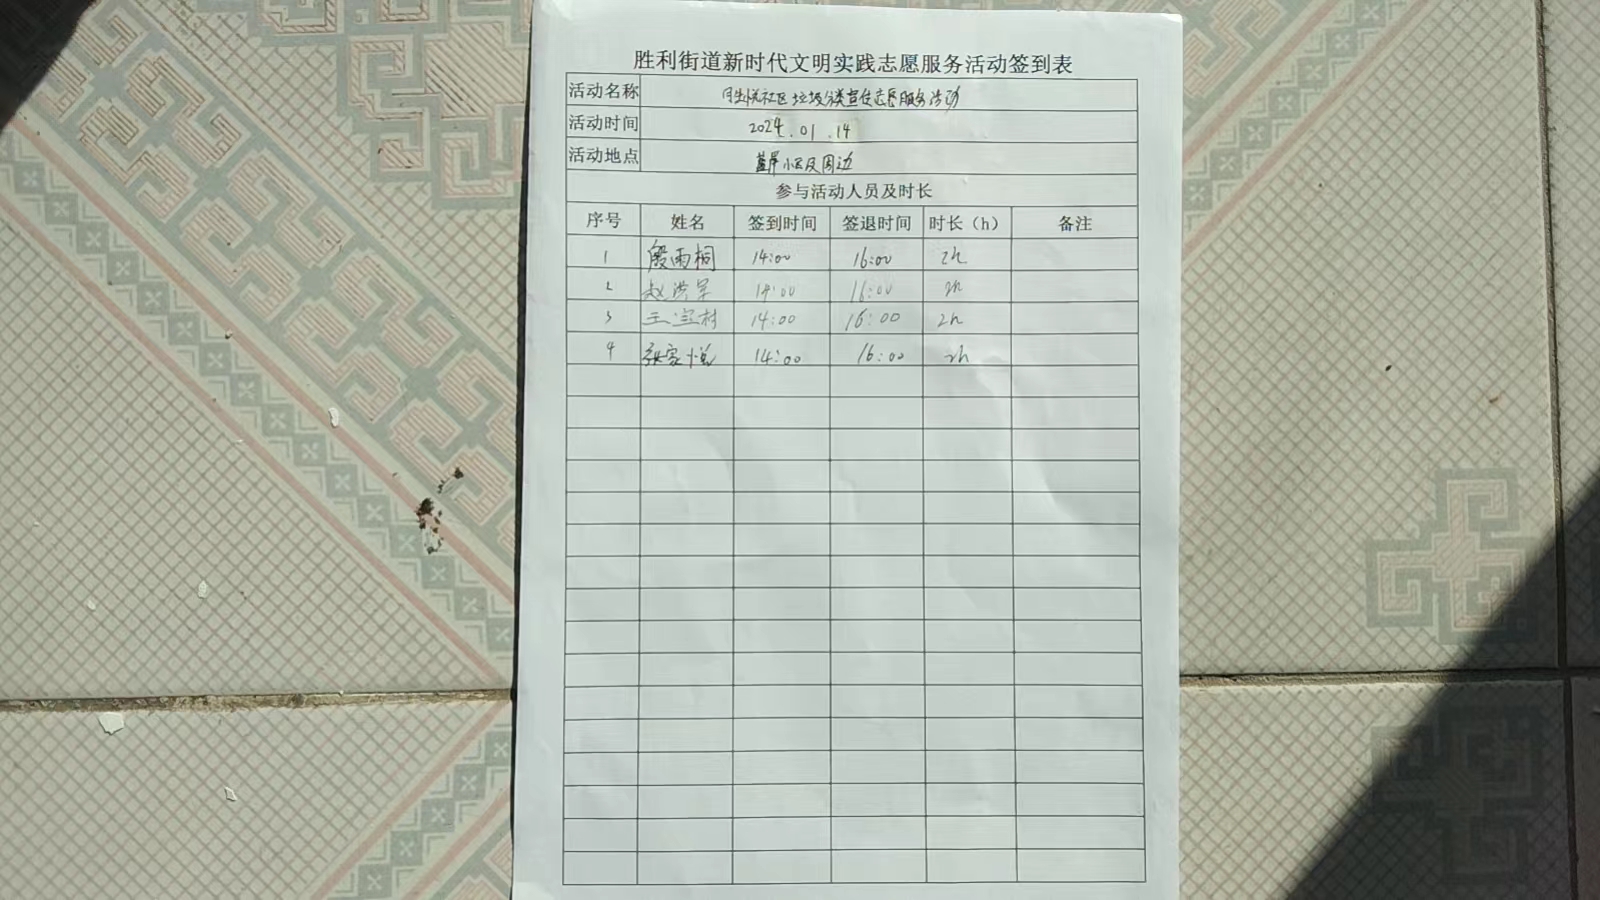 胜利街道新时代文明实践志愿服务活动签到表
活动名称 社区垃圾分类宣传志愿服务活动
活动时间 2024.01.14
活动地点 小区及周边
参与活动人员及时长
序号 姓名 签到时间 签退时间 时长（h） 备注
1 殷雨桐 14:00 16:00 2h
2 赵洪军 14:00 16:00 2h
3 王宝村 14:00 16:00 2h
4 张家悦 14:00 16:00 2h